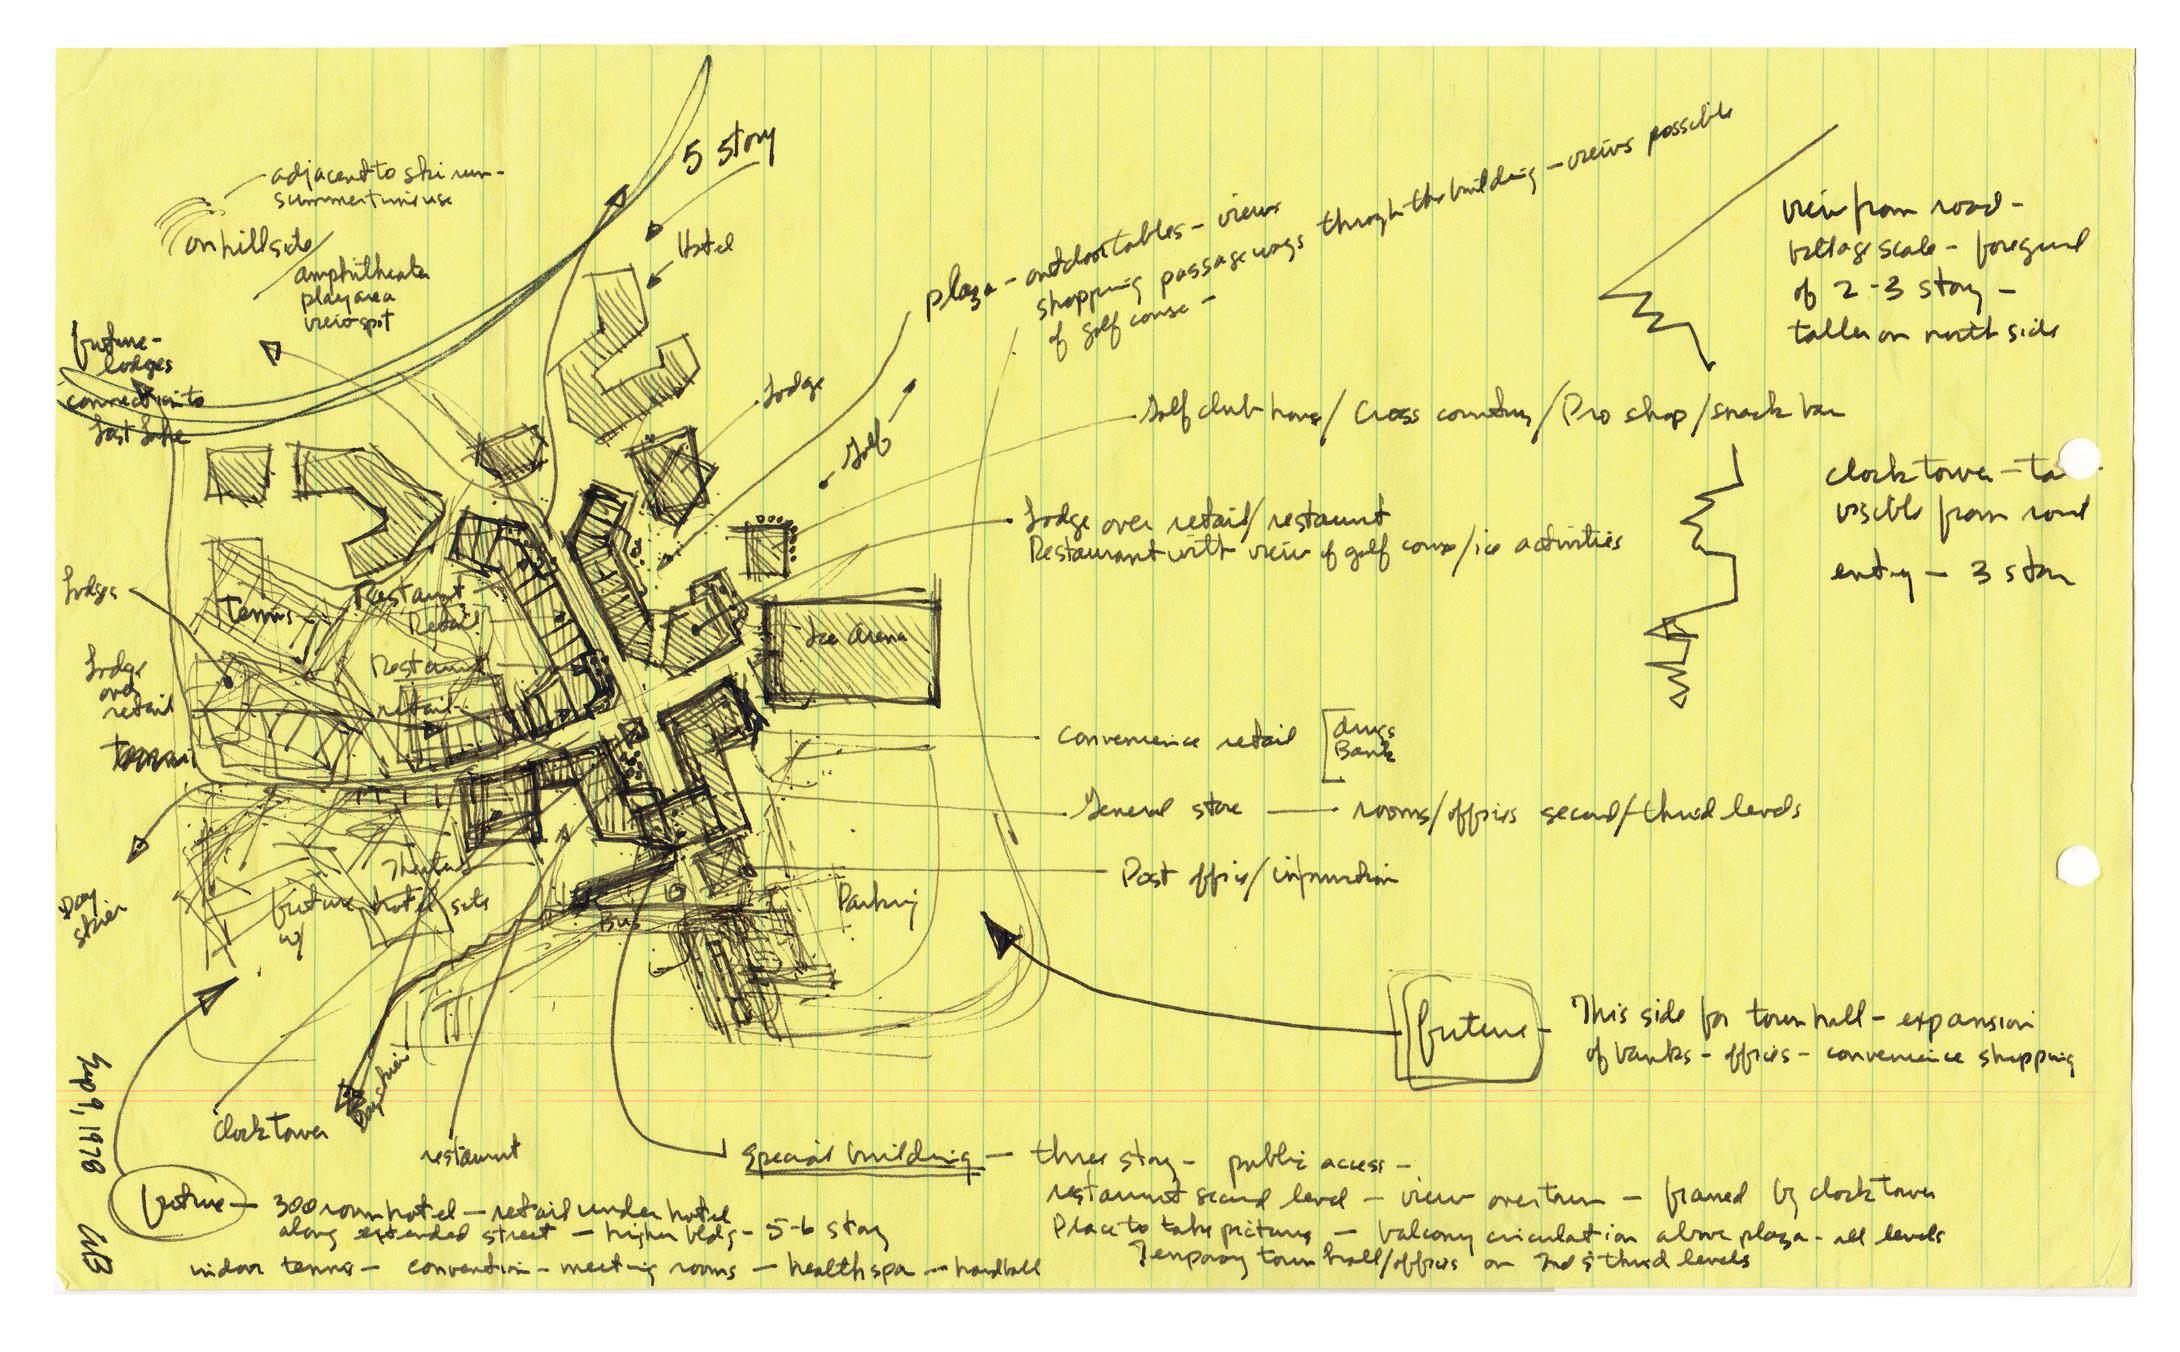 5 story
adjacent to ski run -
summertime use
on hillside
amphitheater
play area
view spot
Hotel
future -
lodges
connection to
Lost Lake
Lodge
Golf
plaza - outdoor tables - views
shopping passageways through the building - views possible
of golf course -
view from road -
village scale - foreground
of 2-3 story -
taller on north side
Golf club house / Cross country / Pro shop / snack bar
clock tower -
visible from road
entry - 3 stor
Lodge over retail / restaurant
Restaurant with view of golf course / ice activities
Lodges
Tennis
Restaurant
Retail
Restaurant
retail
Ice Arena
Lodge
over
retail
Convenience retail [ drugs
Bank
General store — rooms/offices second/third levels
Post office / information
Theater
future hotel site
w/
Bus
Parking
Day
skier
Day skier
Clock Tower
restaurant
future - This side for town hall - expansion
of banks - offices - convenience shopping
Special building - three story - public access -
restaurant second level - view over town - framed by clock tower
Place to take pictures - balcony circulation above plaza - all levels
Temporary town hall/offices on 2nd & third levels
future - 300 room hotel - retail under hotel
along extended street - higher bldg - 5-6 story
indoor tennis - convention - meeting rooms - health spa - handball
Sep 9, 1978